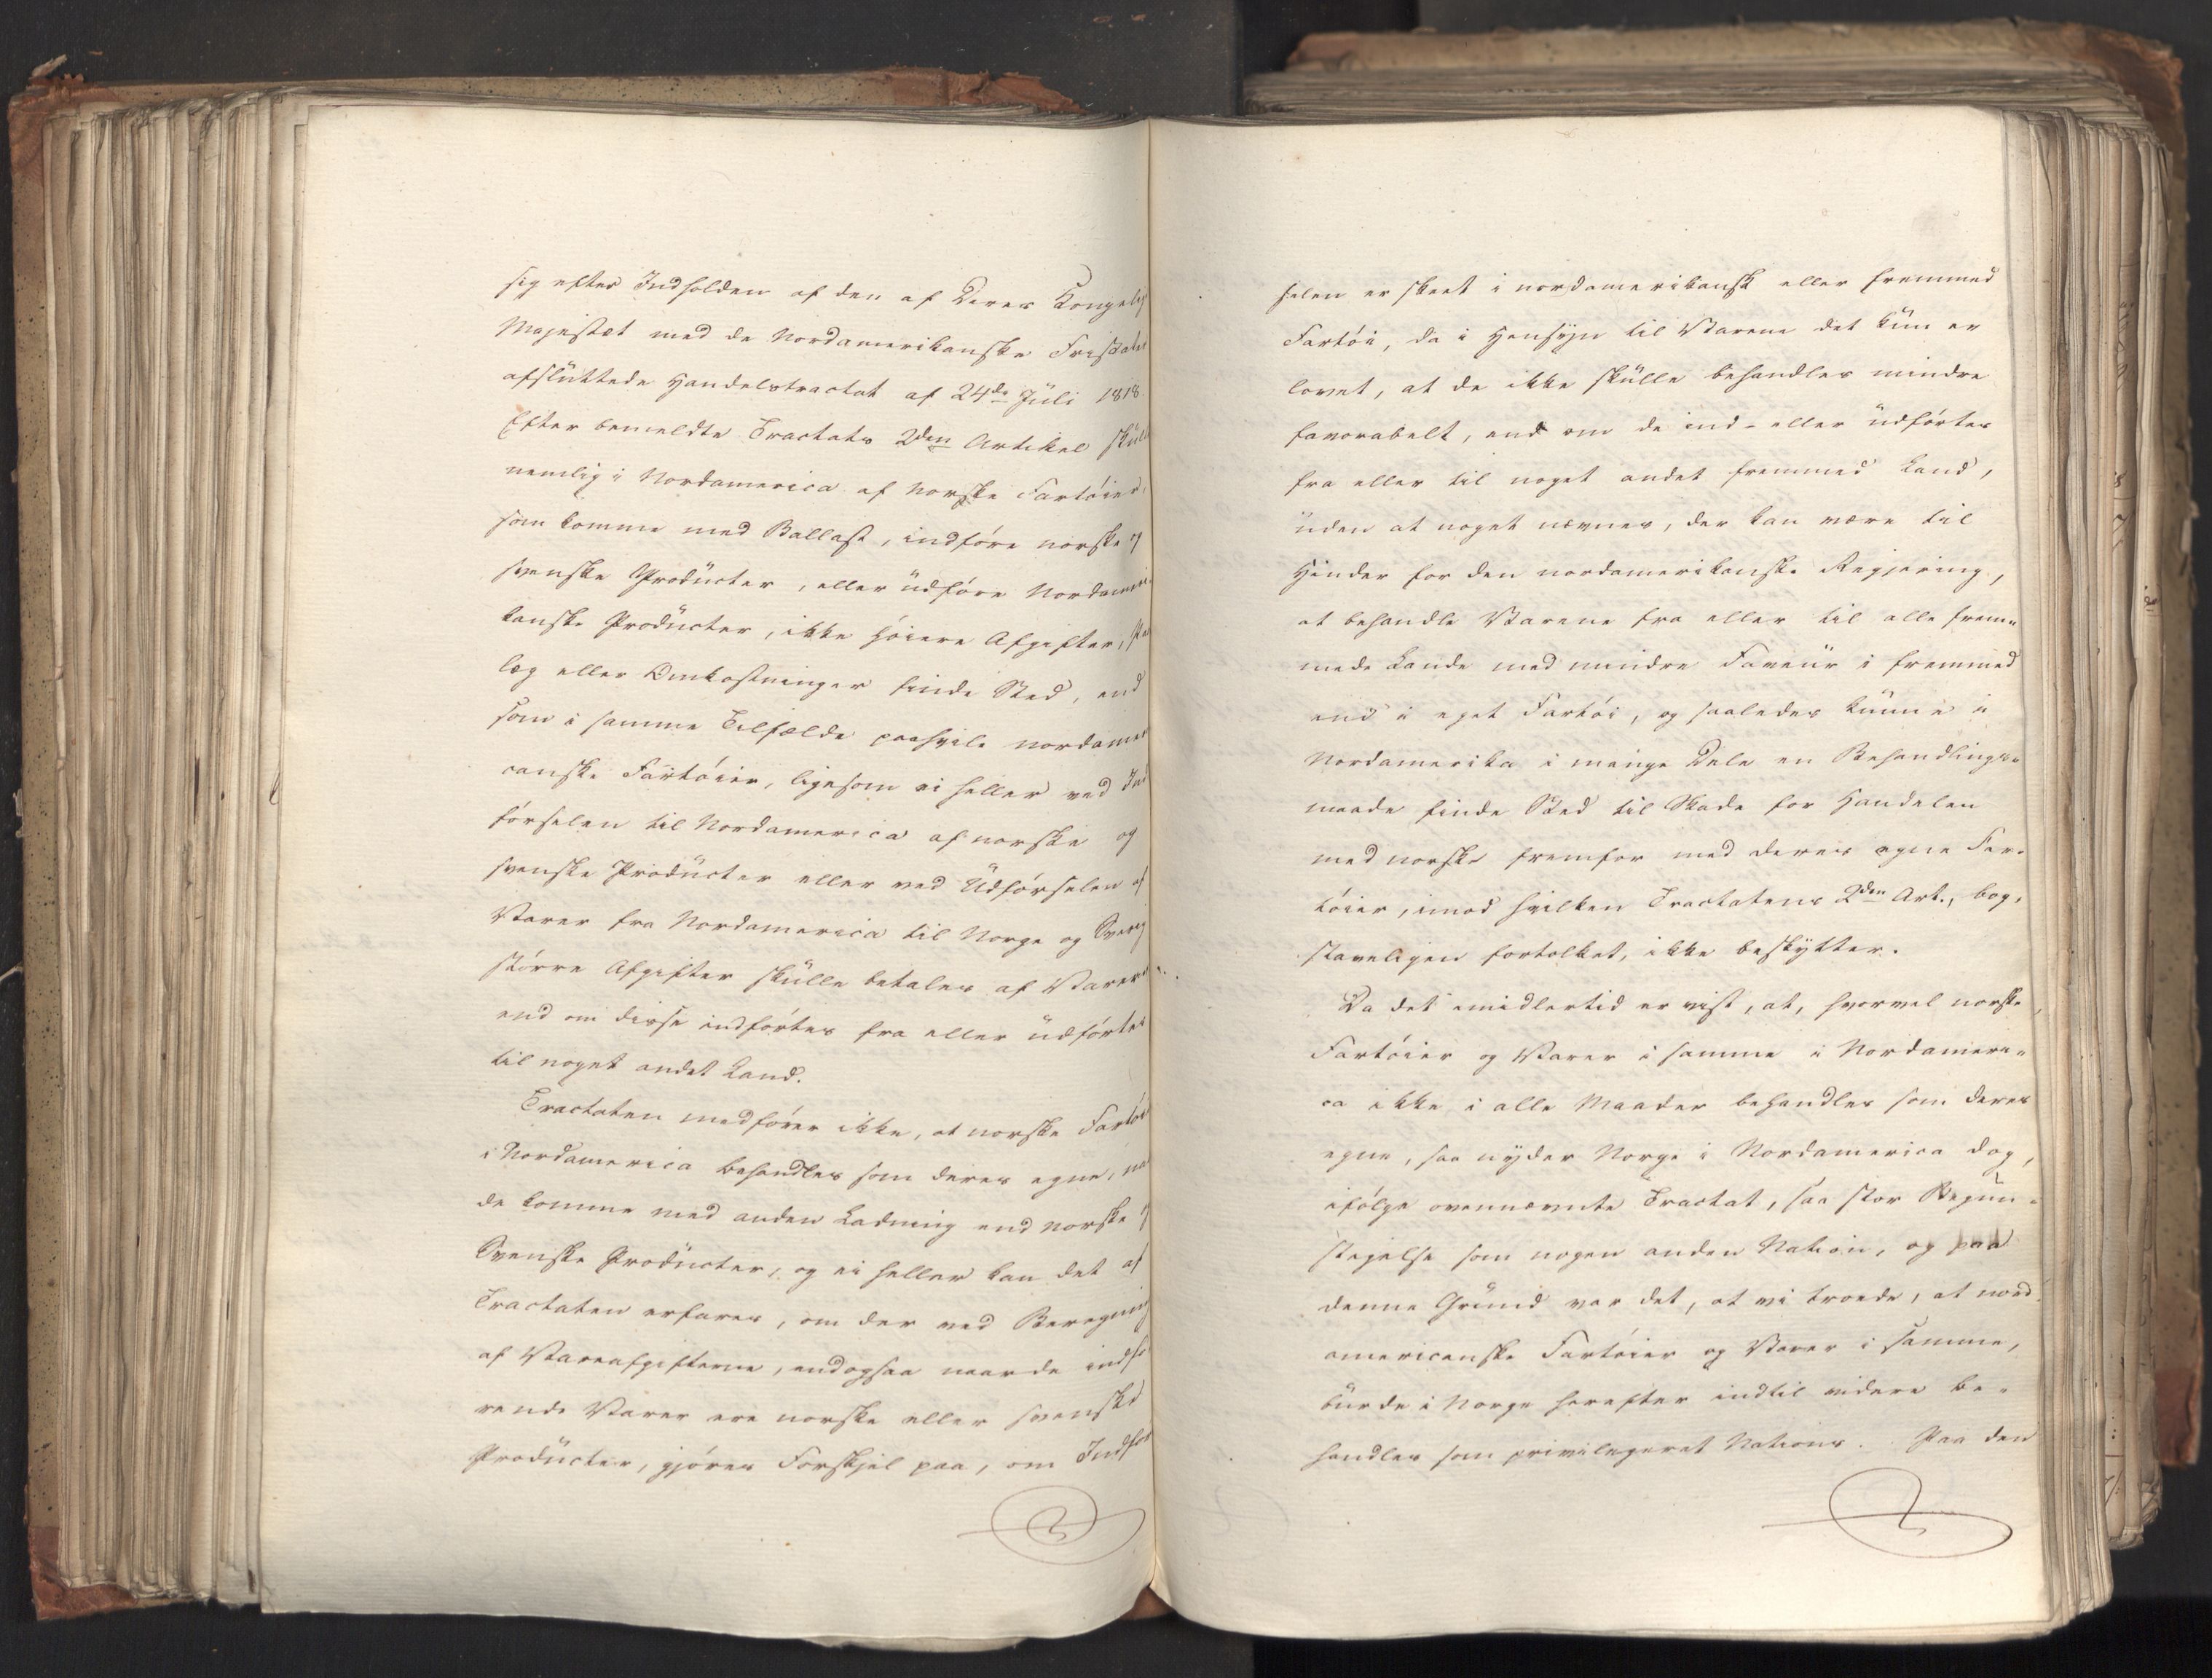 sig efter Indholden af den af Deres Kongelig
Majestæt med de Nordamerikanske Fristater
afslüttede Handelstractat af 24de Jüli 1818.
Efter bemeldte Tractats 2den Artikel skülle
nemlig i Nordamerica af Norske Fartóier,
som komme med Ballast, indfóre norske og
svenske Prodücter, eller üdfóre Nordameri-
kanske Prodücter, ikke hóiere Afgifter,
læg eller Omkostninger finde Sted, end
som i samme Tilfælde paahvile nordameri
canske Fartóier, ligesom ei heller ved Ind
fórselen til Nordamerica af norske og
svenske Prodücter eller ved Üdfórselen af
Varer fra Nordamerica til Norge og Sverig
stórre Afgifter skülle betales af Varerne
end om disse indfórtes fra eller üdfórtes
til noget andet Land.
Tractaten medfórer ikke, at norske Fartói
i Nordamerica behandles som deres egne, naar
de komme med anden Ladning end norske og
Svenske Prodücter, og ei heller kan det af
Tractaten erfares, om der ved Beregning
af Vareafgifterne, endogsaa naar de indfó
rende Varer ere norske eller svenske
Prodücter, gjóres Forskjel paa, om Indfór
selen er skeet i nordamerikansk eller fremmed
Fartói, da i Hensyn til Varene det kün er
lovet, at de ikke skülle behandles mindre
favorabelt, end om de ind- eller üdfórtes
fra eller til noget andet fremmed Land,
üden at noget nævnes, der kan være til
Hinder for den nordamerikanske Regjering,
at behandle Varene fra eller til alle frem-
mede Lande med mindre Faveür i fremmed
end i eget Fartói, og saaledes künne i
Nordamerika i mange Dele en Behandlings-
maade finde Sted til Skade for Handelen
med norske fremfor med deres egne Far-
tóier, imod hvilken Tractatens 2den Art., bog-
staveligen fortolket, ikke beskytter.
Da det imidlertid er vist, at, hvorvel norske
Fartóier og Varer i samme i Nordameri-
ca ikke i alle Maader behandles som deres
egne, saa nyder Norge i Nordamerica dog,
ifólge ovennævnte Tractat, saa stor Begün-
stigelse som nogen anden Nation, og paa
denne Gründ var det, at vi troede, at nord-
americanske Fartóier og Varer i samme,
bürde i Norge herefter indtil videre be-
handles som privilegeret Nations. Paa den